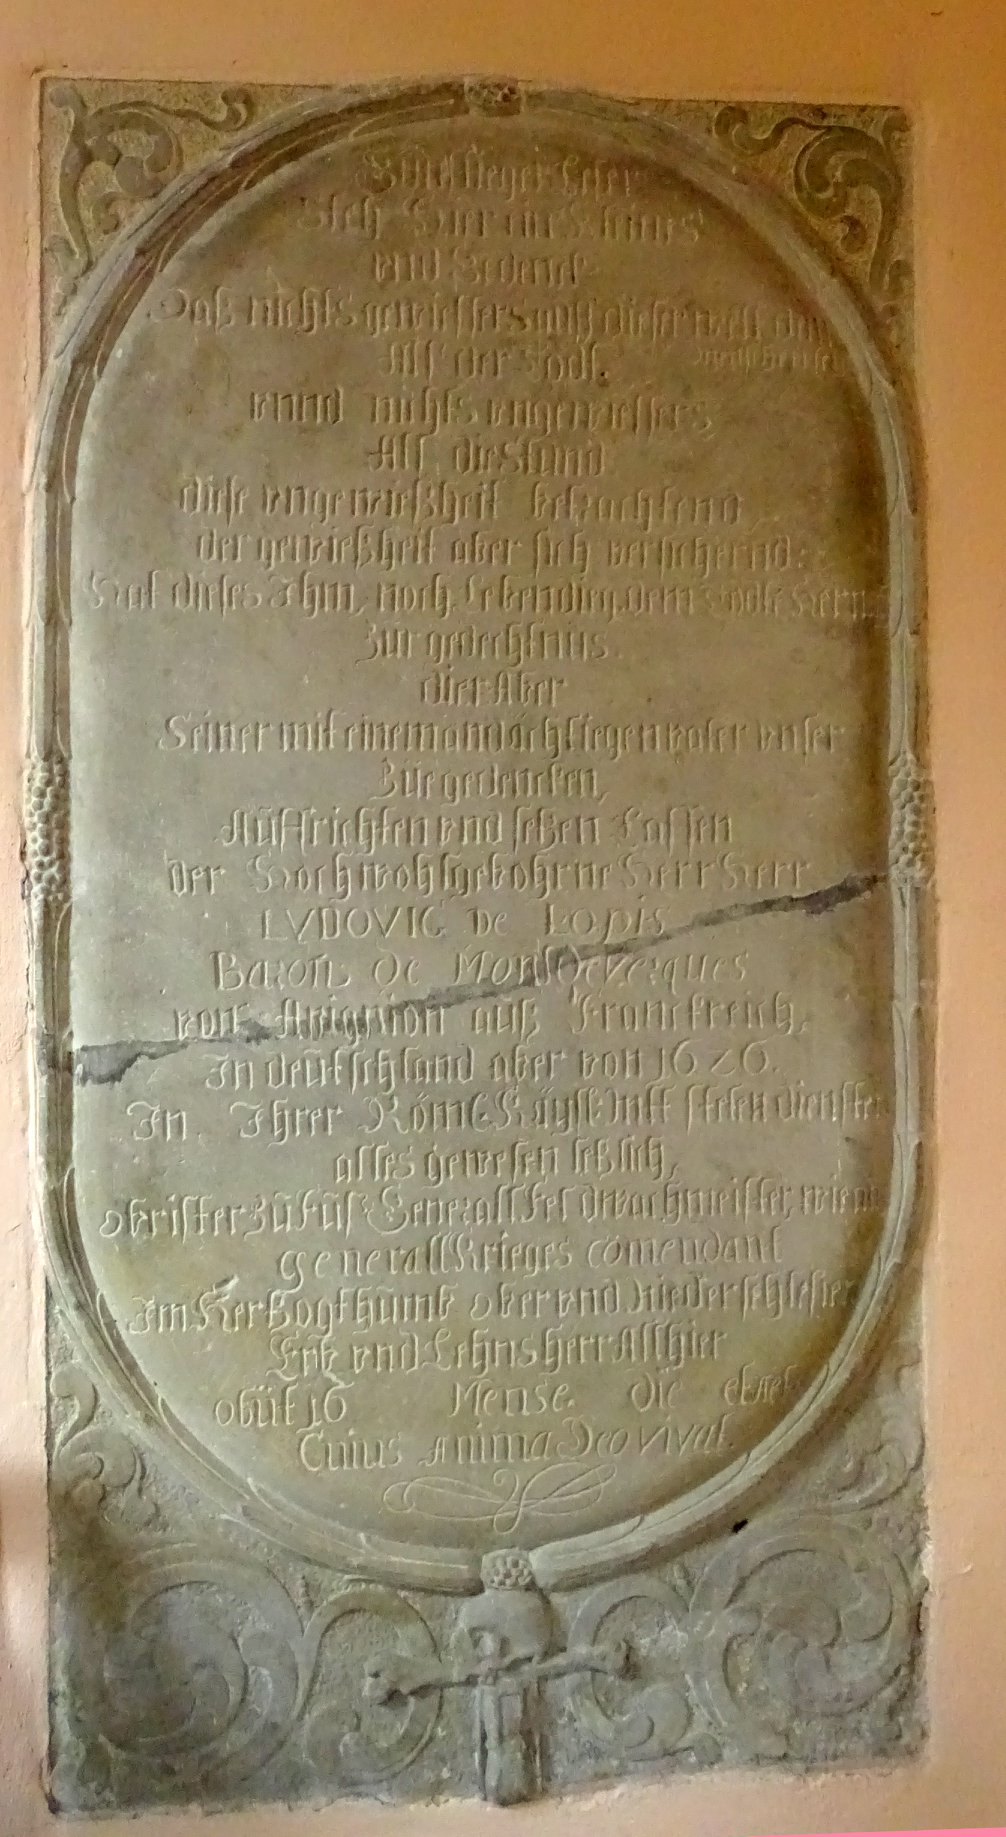 Steh Hier ine Leinns
vnd Bedenck
Daß nichts gewiessers auff dieser welt dan
Alß der Todt.
vnnd nichts vngewiessers
Alß die Stund
diese vngewießheit betrachtend
der gewießheit aber sich versichernd:
Hat dieses Ihm, noch Lebendieg, dem Todte Hern
Zur gedechtnüs.
dier Aber
Seiner mit einem andächttiegen vater vnser
Zue gedencken,
Auffrichten vnd seßen Lassen
der Hochwohlgebohrne Herr Herr
LVDOVIG de Lopis
Baron de Mondeverques
von Avignion auß Franckreich,
In deutschland aber von 1626.
In Ihrer Röm: Käyß: Mtt steten dienster
alles gewesen seßlich,
obrister zu fuß, Generall feldwachmeister, wie a
generall Krieges comendant
Im Herßogthumb ober vnd Niederschlesie
Erb vnd Lehns herr Allhier
obüt 16 Mense. die etat:
Cuius anima Deo vivat.